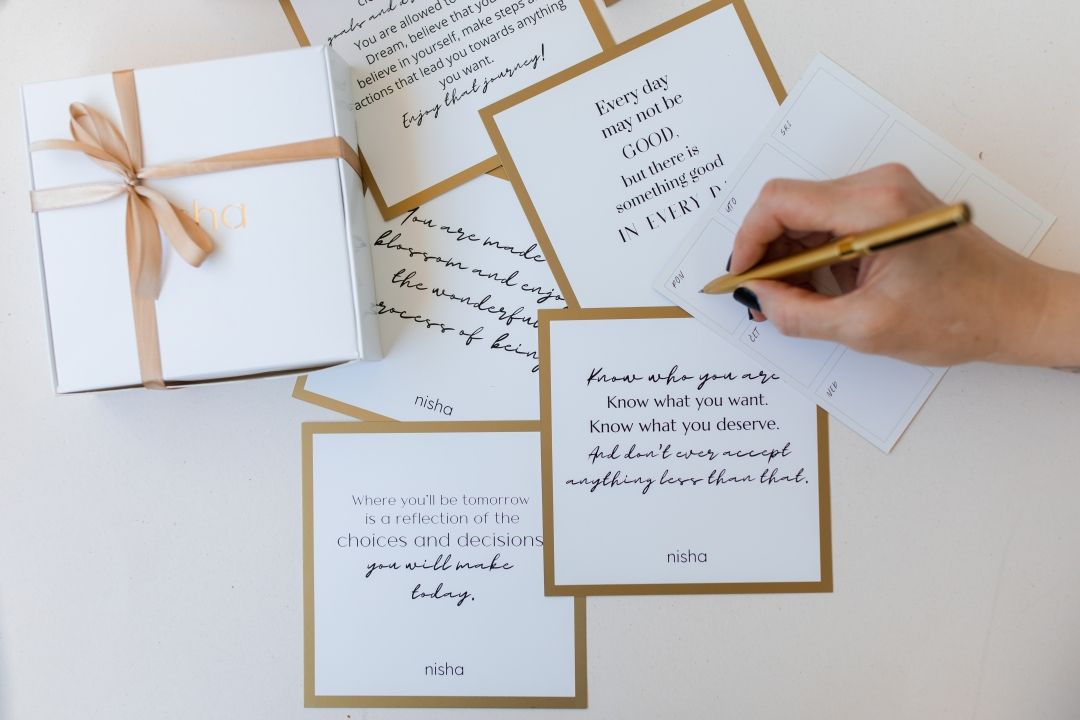 goals and
You are allowed to
Dream, believe that you
believe in yourself, make steps
actions that lead you towards anything
you want.
Enjoy that journey!
Every day
may not be
GOOD,
but there is
something good
IN EVERY
You are made
blossom and enjoy
the wonderful
process of being
nisha
SRI
UTO
PON
ČET
NED
ha
Know who you are
Know what you want.
Know what you deserve.
And don't ever accept
anything less than that.
nisha
Where you'll be tomorrow
is a reflection of the
choices and decisions
you will make
today.
nisha